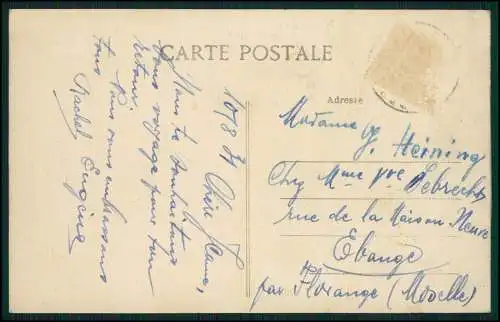 CARTE POSTALE
10/8 31 Chère Jeanne,
Nous te souhaitons
bons voyage pour ton
retour.
Nous vous embrassons
tous
Rachel Eugène
Adresse
Madame J. Heining
Chez Mme Vve Sebrecht
rue de la Maison-Neuve
Ebange
par Florange (Moselle)